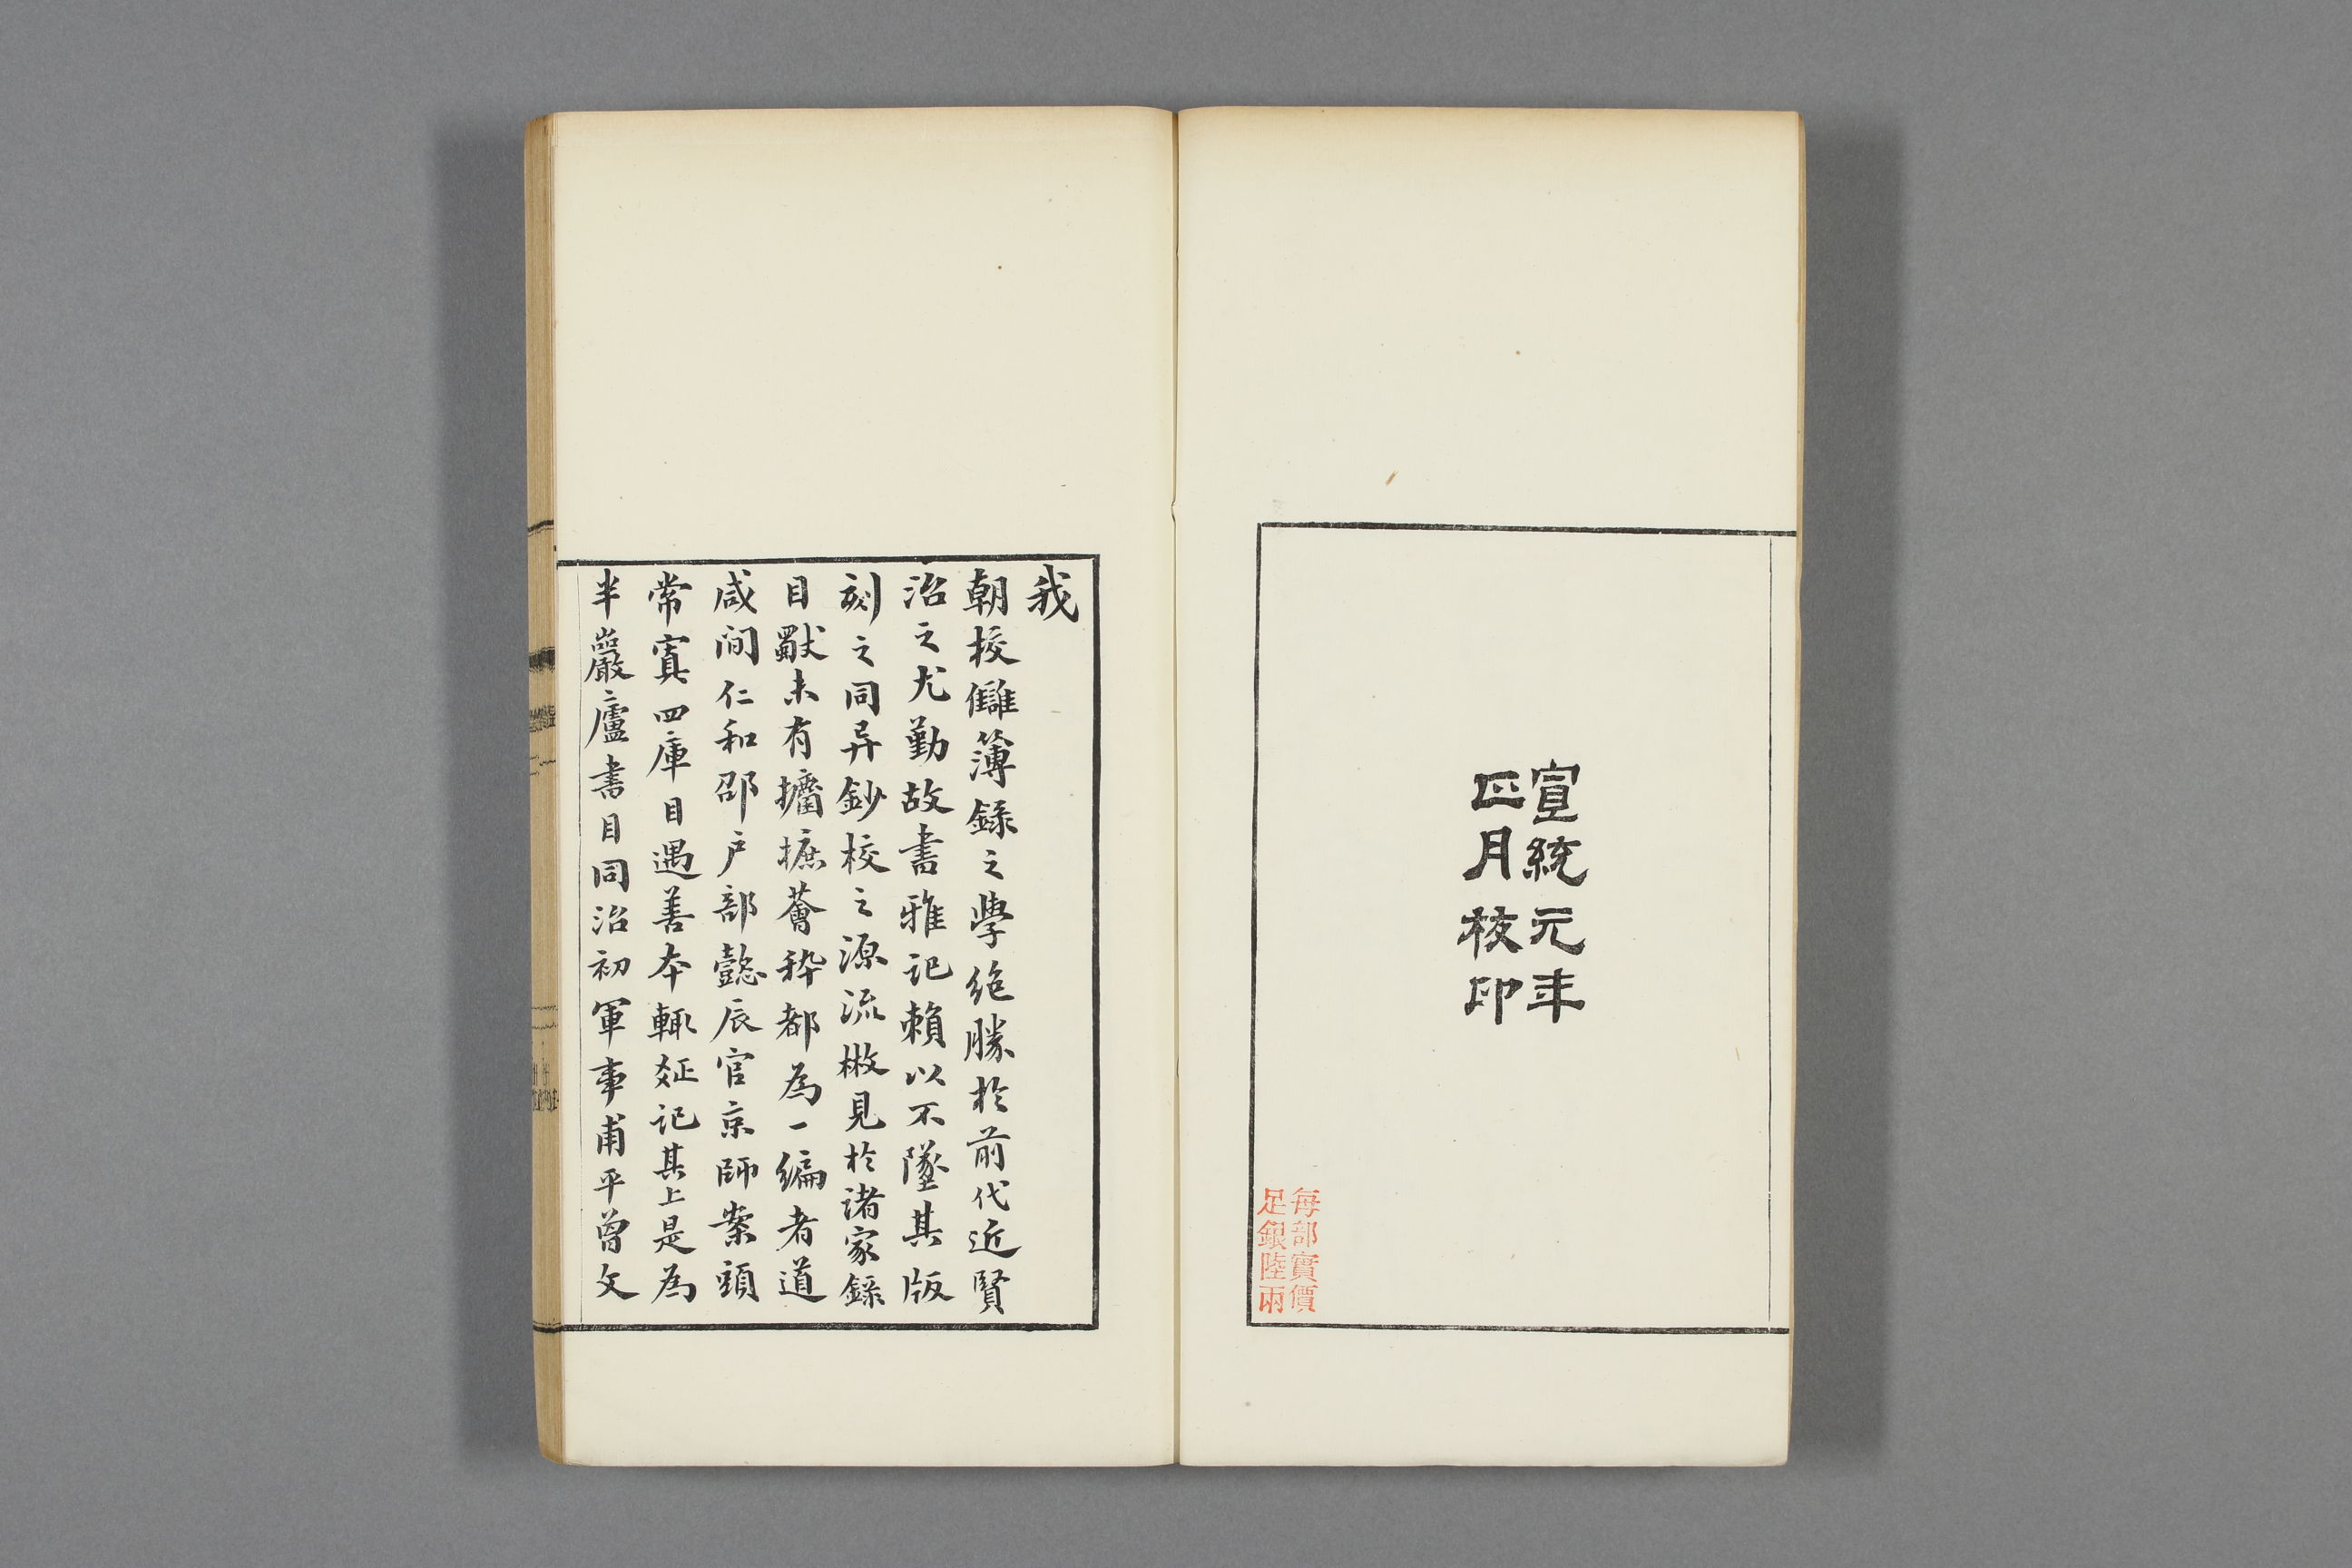 宣統元年
正月校印
每部實價
足銀陸兩
我
朝挍讎簿錄之學絶勝於前代近賢
治之尤勤故書雅記賴以不墜其版
刻之同异鈔校之源流散見於諸家錄
目獨未有攟摭薈稡都為一編者道
咸間仁和邵户部懿辰官京師案頭
常寘四庫目遇善本輒疏記其上是為
半巖廬書目同治初軍事甫平曾文